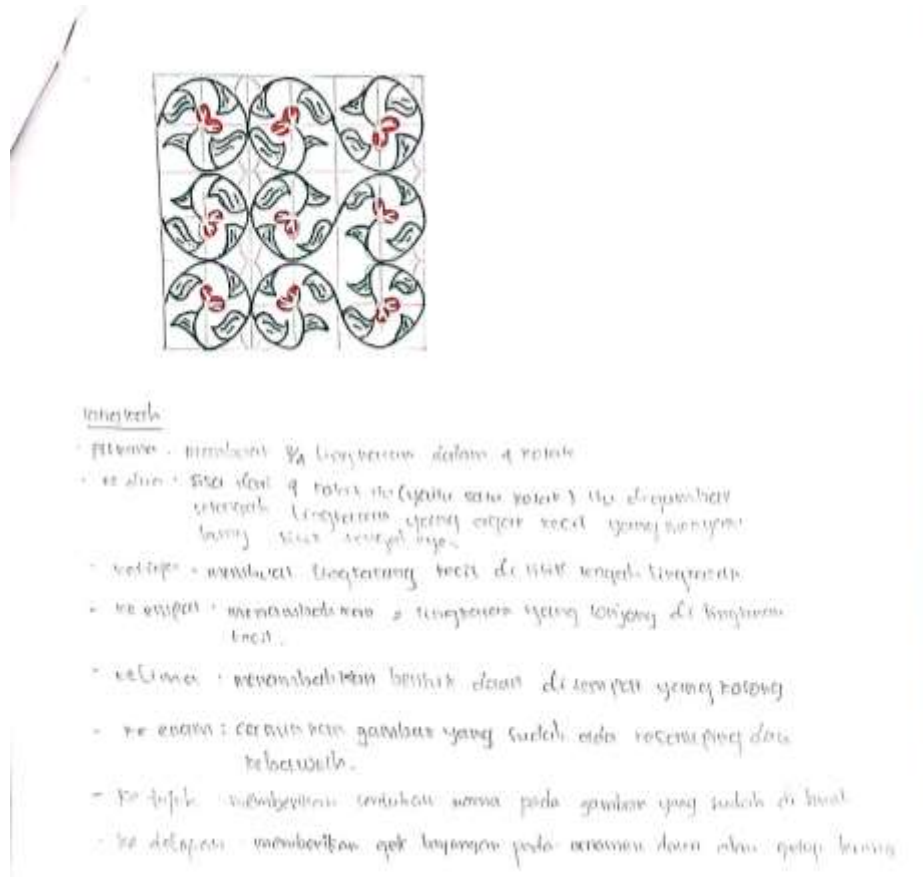 langkah
- pertama : membuat 3/4 lingkaran dalam 4 kotak
- ke dua : sisa dari 4 kotak itu (yaitu satu kotak) itu digambar
setengah lingkaran yang agak kecil yang
- ketiga : membuat lingkarang kecil di titik tengah lingkaran
- ke empat : menambahkan 2 lingkaran yang lonjong di lingkaran
kecil.
- kelima : menambahkan bentuk daun di tempat yang kosong
- ke enam : cerminkan gambar yang sudah ada kesamping dan
kebawah.
- ke tujuh memberikan sentuhan warna pada gambar yang sudah di buat
- ke delapan memberikan pada ornamen daun